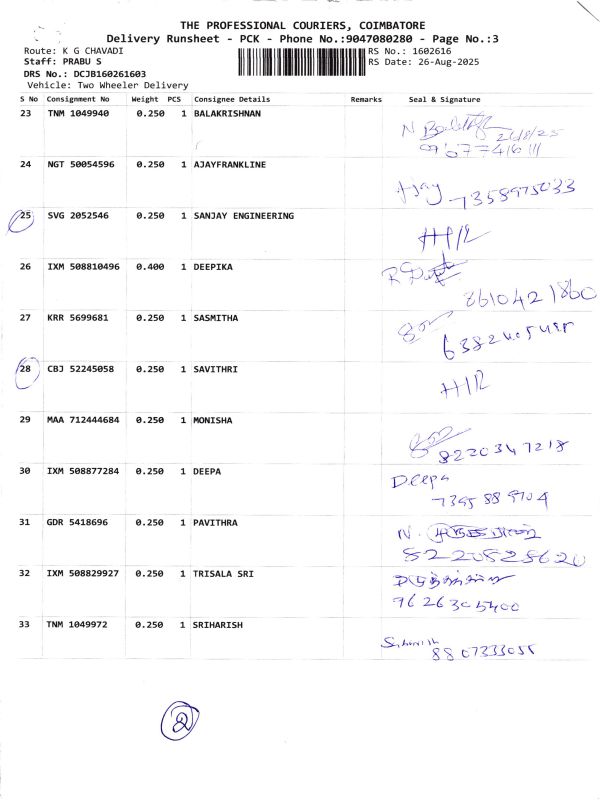 THE PROFESSIONAL COURIERS, COIMBATORE
Delivery Runsheet - PCK - Phone No.:9047080280 - Page No.:3
Route: K G CHAVADI
RS No.: 1602616
Staff: PRABU S
RS Date: 26-Aug-2025
DRS No.: DCJB160261603
Vehicle: Two Wheeler Delivery
S No Consignment No Weight PCS Consignee Details Remarks Seal & Signature
23 TNM 1049940 0.250 1 BALAKRISHNAN
N 26/8/25
24 NGT 50054596 0.250 1 AJAYFRANKLINE
Ajay 7358975033
25 SVG 2052546 0.250 1 SANJAY ENGINEERING
H/R
26 IXM 508810496 0.400 1 DEEPIKA
8610421860
27 KRR 5699681 0.250 1 SASMITHA
28 CBJ 52245058 0.250 1 SAVITHRI
H/R
29 MAA 712444684 0.250 1 MONISHA
8220347218
30 IXM 508877284 0.250 1 DEEPA
Deepa
7395889704
31 GDR 5418696 0.250 1 PAVITHRA
N.
8220828620
32 IXM 508829927 0.250 1 TRISALA SRI
9626305400
33 TNM 1049972 0.250 1 SRIHARISH
8807333055
2